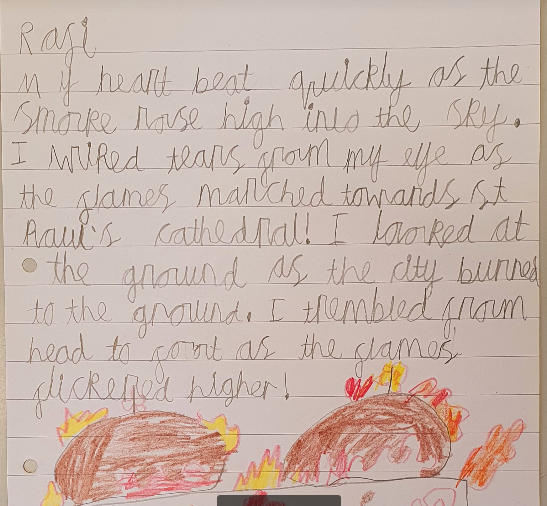 Rafi
My heart beat quickly as the
smoke rose high into the sky.
I wiped tears from my eye as
the flames marched towards st
Paul's cathedral! I looked at
the ground as the city burned
to the ground. I trembled from
head to foot as the flames
flickered higher!